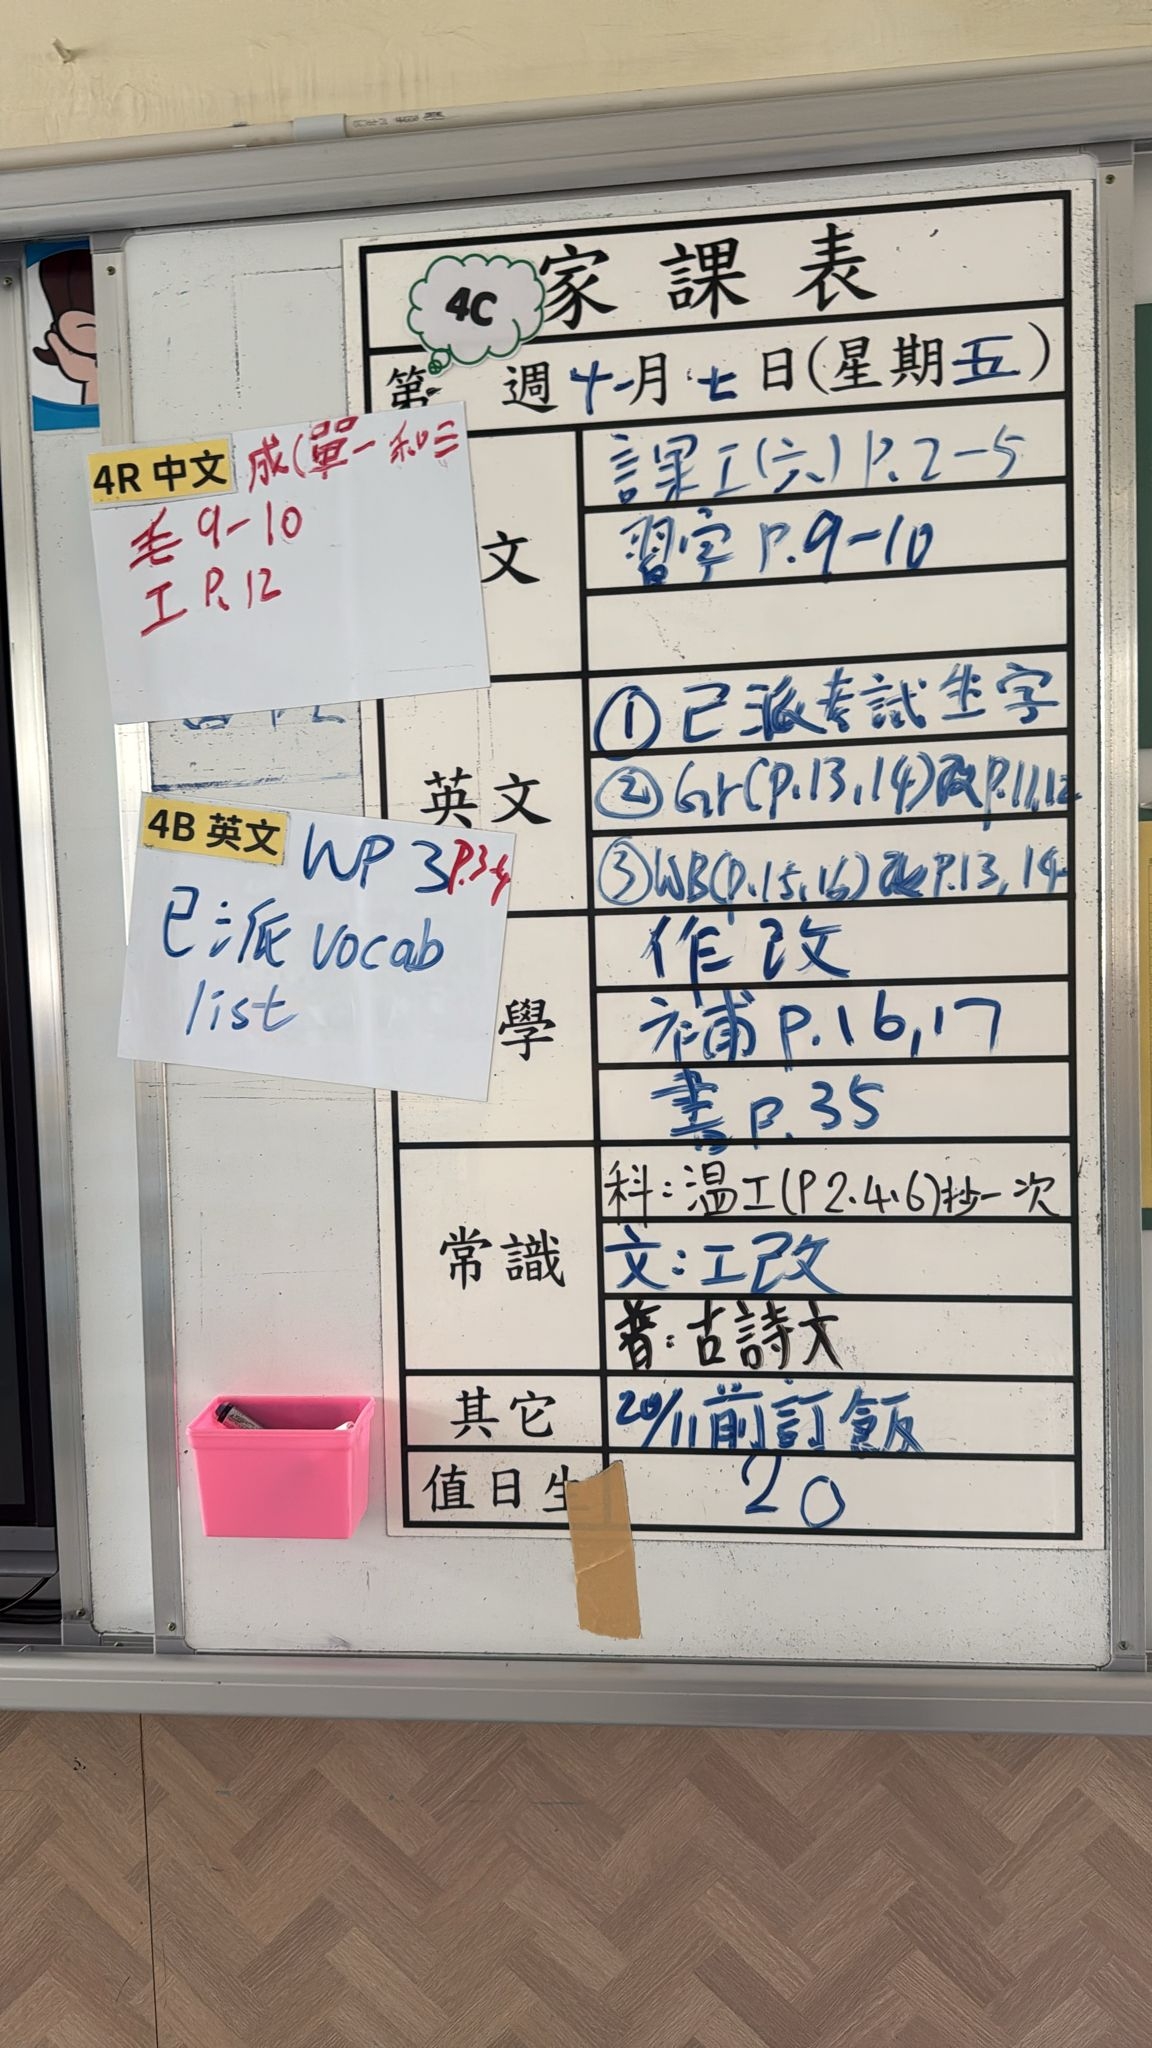 家課表
4C
第 週 十一月 七 日(星期五)
4R 中文 成(單一和三
毛 9-10
工 P. 12
文
課工(六) P. 2-5
習字 P. 9-10
英文
① 已派考試生字
② Gr(P.13,14)改P.11,12
③ WB(P.15,16)改P.13,14
4B 英文 WP 3 P.3-4
已派 vocab
list
學
作改
補 P. 16,17
書 P. 35
常識
科:温工(P 2.4.6)抄一次
文:工改
普:古詩文
其它
20/11前訂飯
值日生
20